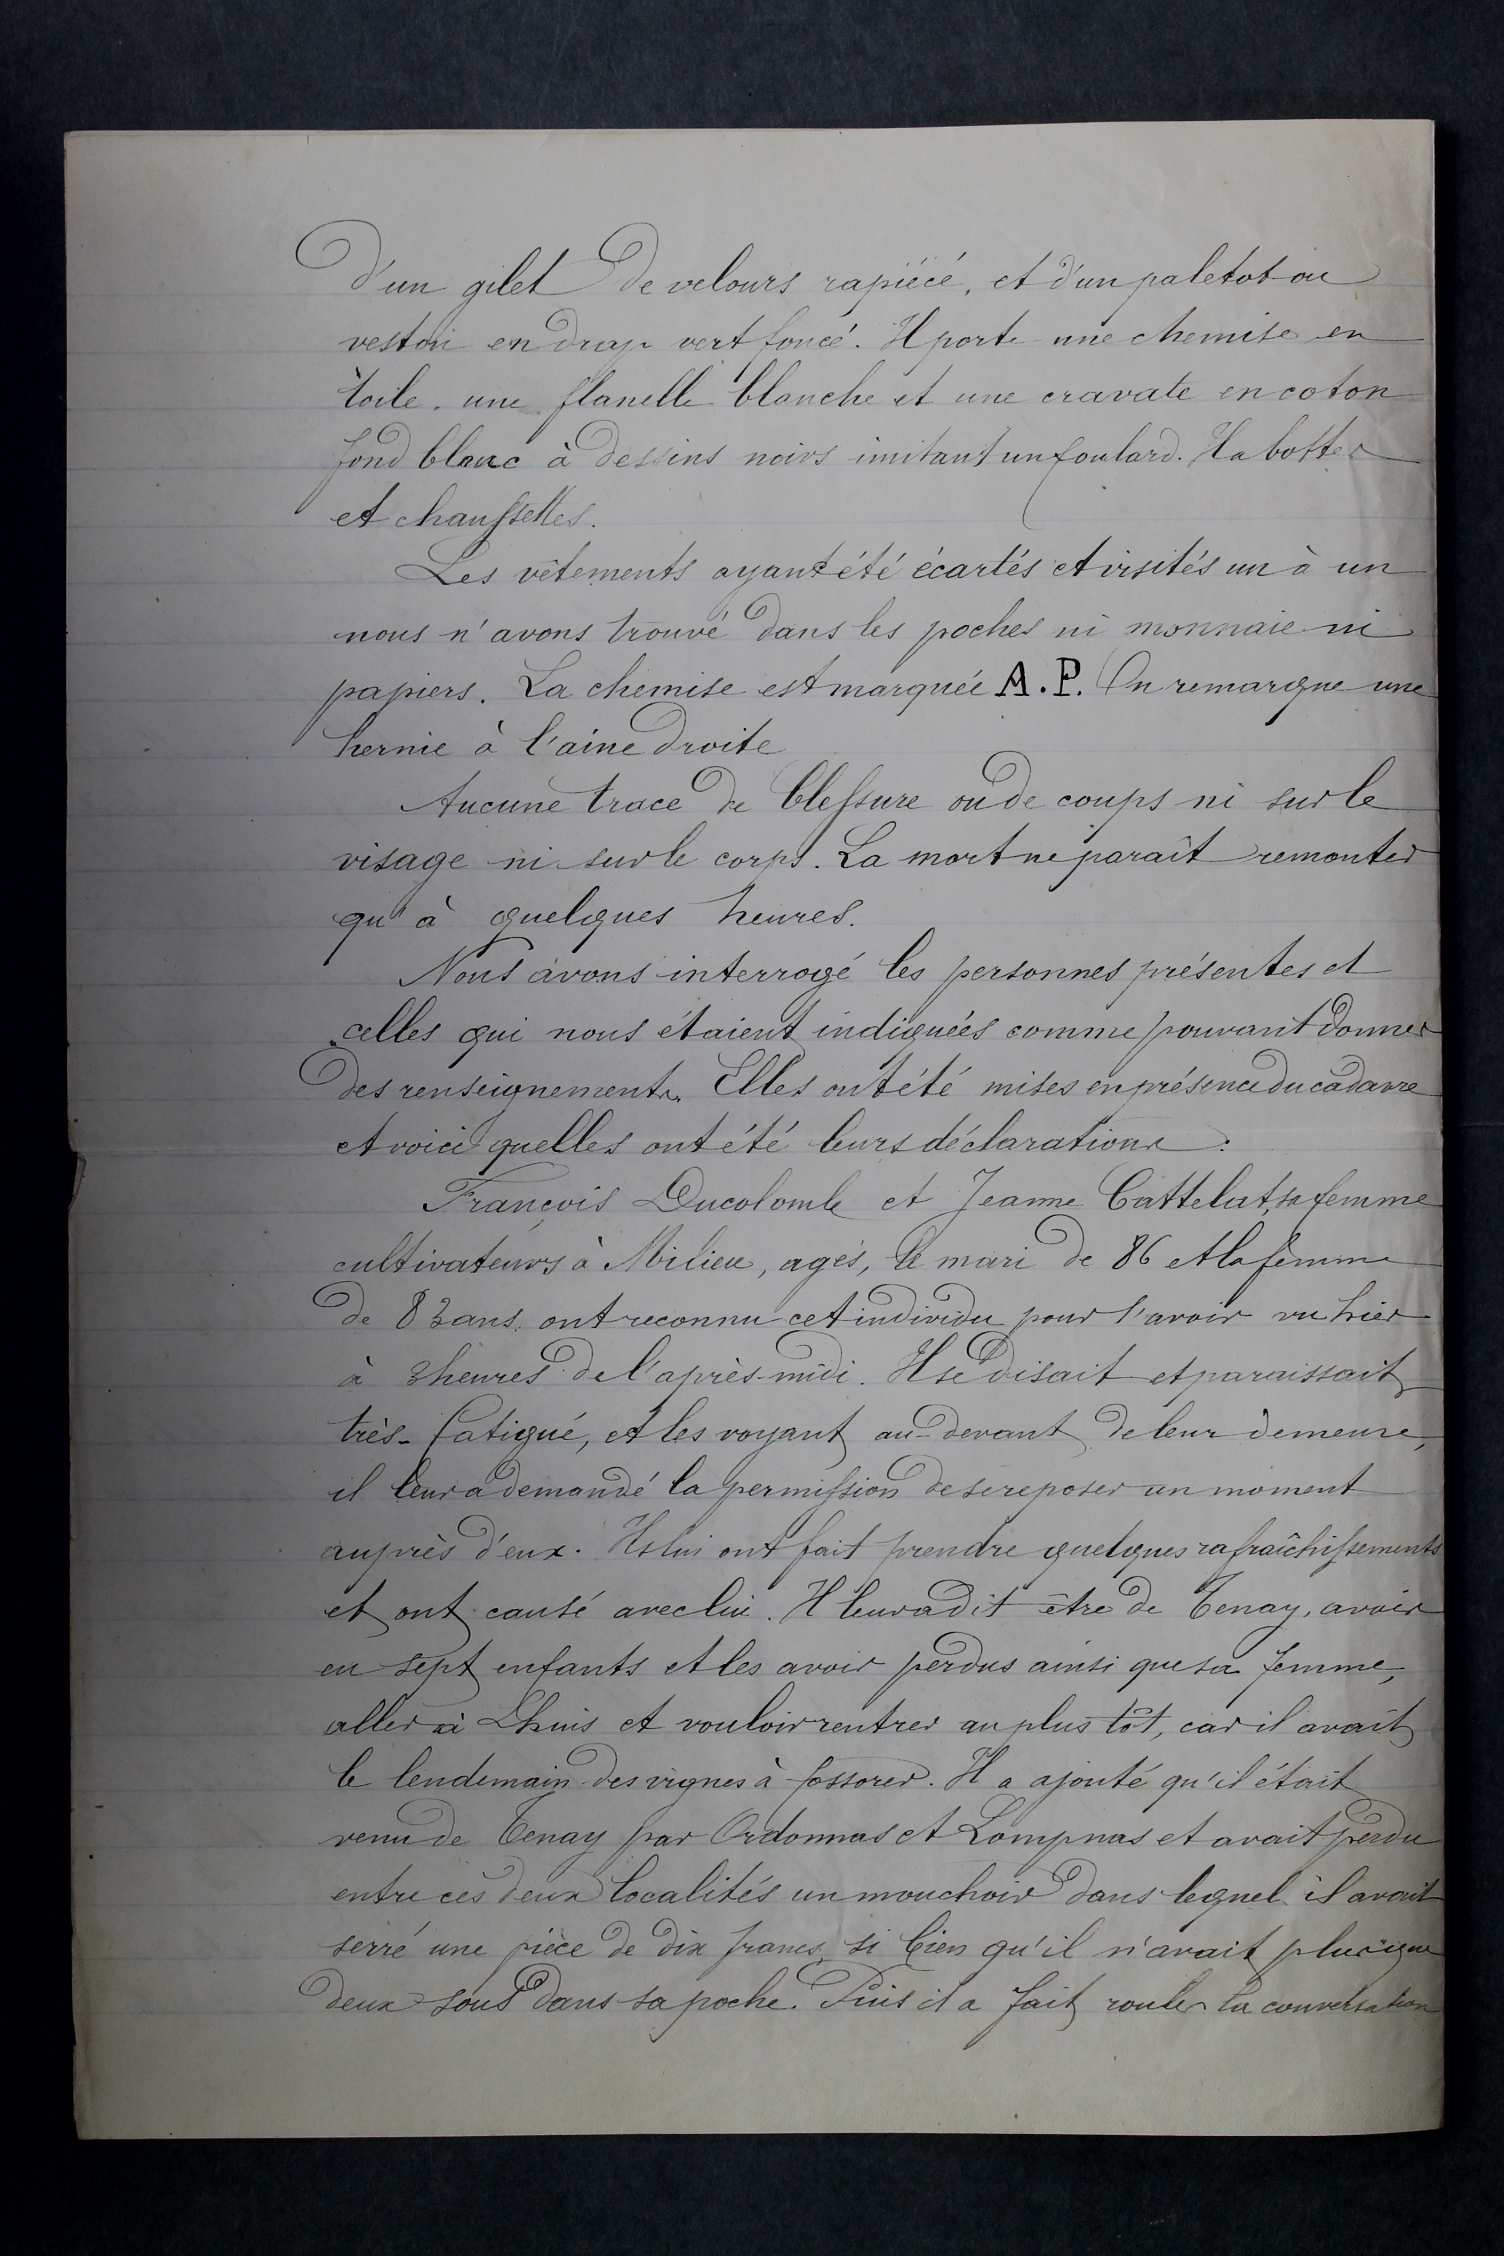 d'un gilet de velours rapiécé, et d'un paletot ou
veston en drap vert foncé. Il porte une chemise en
toile, une flanelle blanche et une cravate en coton
fond blanc à dessins noirs imitant un foulard. Il a bottes
et chaussettes.
Les vêtements ayant été écartés et visités un à un
nous n'avons trouvé dans les poches ni monnaie ni
papiers. La chemise est marquée A.P. On remarque une
hernie à l'aine droite
Aucune trace de blessure ou de coups ni sur le
visage ni sur le corps. La mort ne paraît remonter
qu'à quelques heures.
Nous avons interrogé les personnes présentes et
celles qui nous étaient indiquées comme pouvant donner
des renseignements. Elles ont été mises en présence du cadavre
et voici quelles ont été leurs déclarations :
François Ducolomb et Jeanne Cattelat, sa femme
cultivateurs à Milieu, agés, le mari de 86 et la femme
de 83 ans, ont reconnu cet individu pour l'avoir vu hier
à 3 heures de l'après-midi. Il se disait et paraissait
très-fatigué, et les voyant au-devant de leur demeure,
il leur a demandé la permission de se reposer un moment
auprès d'eux. Ils lui ont fait prendre quelques rafraîchissements
et ont causé avec lui. Il leur a dit être de Tenay, avoir
eu sept enfants et les avoir perdus ainsi que sa femme,
aller à Lhuis et vouloir rentrer au plus tôt, car il avait
le lendemain des vignes à fossorer. Il a ajouté qu'il était
venu de Tenay par Ordonnas et Lompnas et avait perdu
entre ces deux localités un mouchoir dans lequel il avait
serré une pièce de dix francs, si bien qu'il n'avait plus que
deux sous dans sa poche. Puis il a fait rouler la conversation